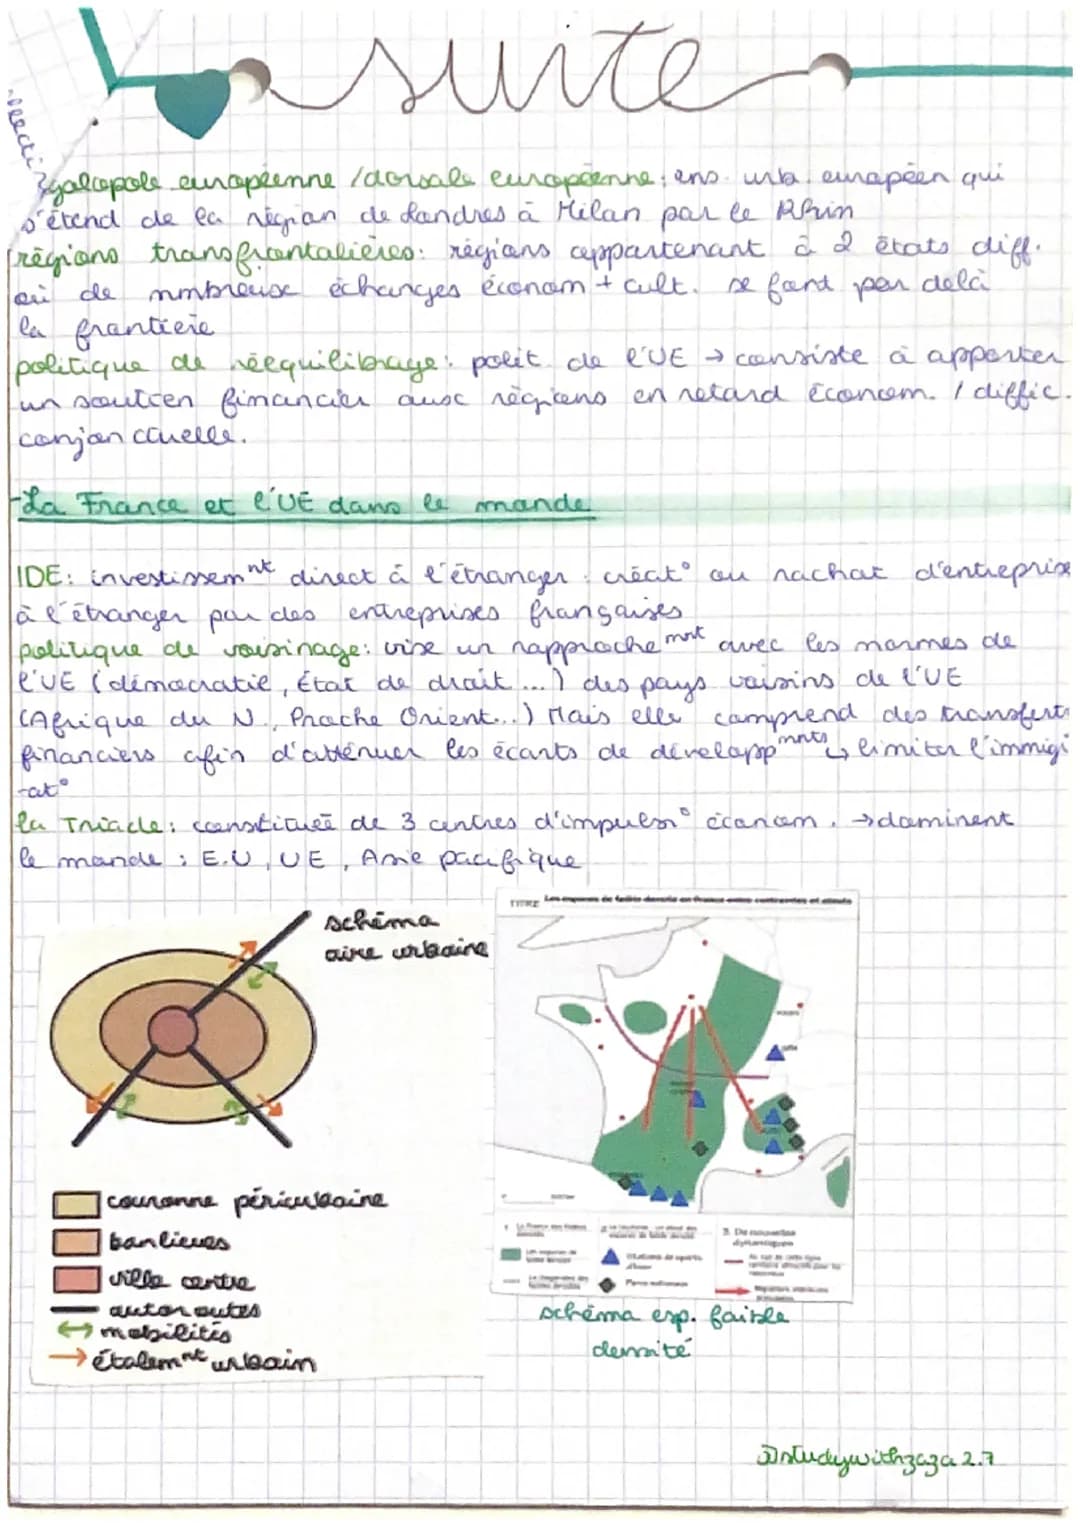 suite
galopole européenne / dorsale européenne : ens. urb. européen qui
s'étend de la région de Londres à Milan par le Rhin
régions transfrontalières : régions appartenant à 2 états diff.
où de nmbreuse échanges économ + cult. se font par delà
la frontière
politique de rééquilibrage : polit. de l'UE → consiste à apporter
un soutien financier aux régions en retard économ. / diffic.
conjoncturelle.
-La France et l'UE dans le monde
IDE : investissemnt direct à l'étranger : créat° ou rachat d'entreprise
à l'étranger par des entreprises françaises
politique de voisinage : vise un rapprochemnt avec les normes de
l'UE (démocratie, État de droit ...) des pays voisins de l'UE
(Afrique du N., Proche Orient...) Mais elle comprend des transferts
financiers afin d'atténuer les écarts de développmnts ↳ limiter l'immigr
-at°
la Triade : constituée de 3 centres d'impulsn° économ. → dominent
le monde : E.U, UE, Asie pacifique
schéma
aire urbaine
TITRE Les espaces de faible densité en France entre contraintes et atouts
couronne périurbaine
banlieues
ville centre
autoroutes
mobilités
étalemnt urbain
3. De nouvelles
dynamiques
Stations de sports
d'hiver
Parcs nationaux
schéma esp. faible
densité
@studywithzaza2.7